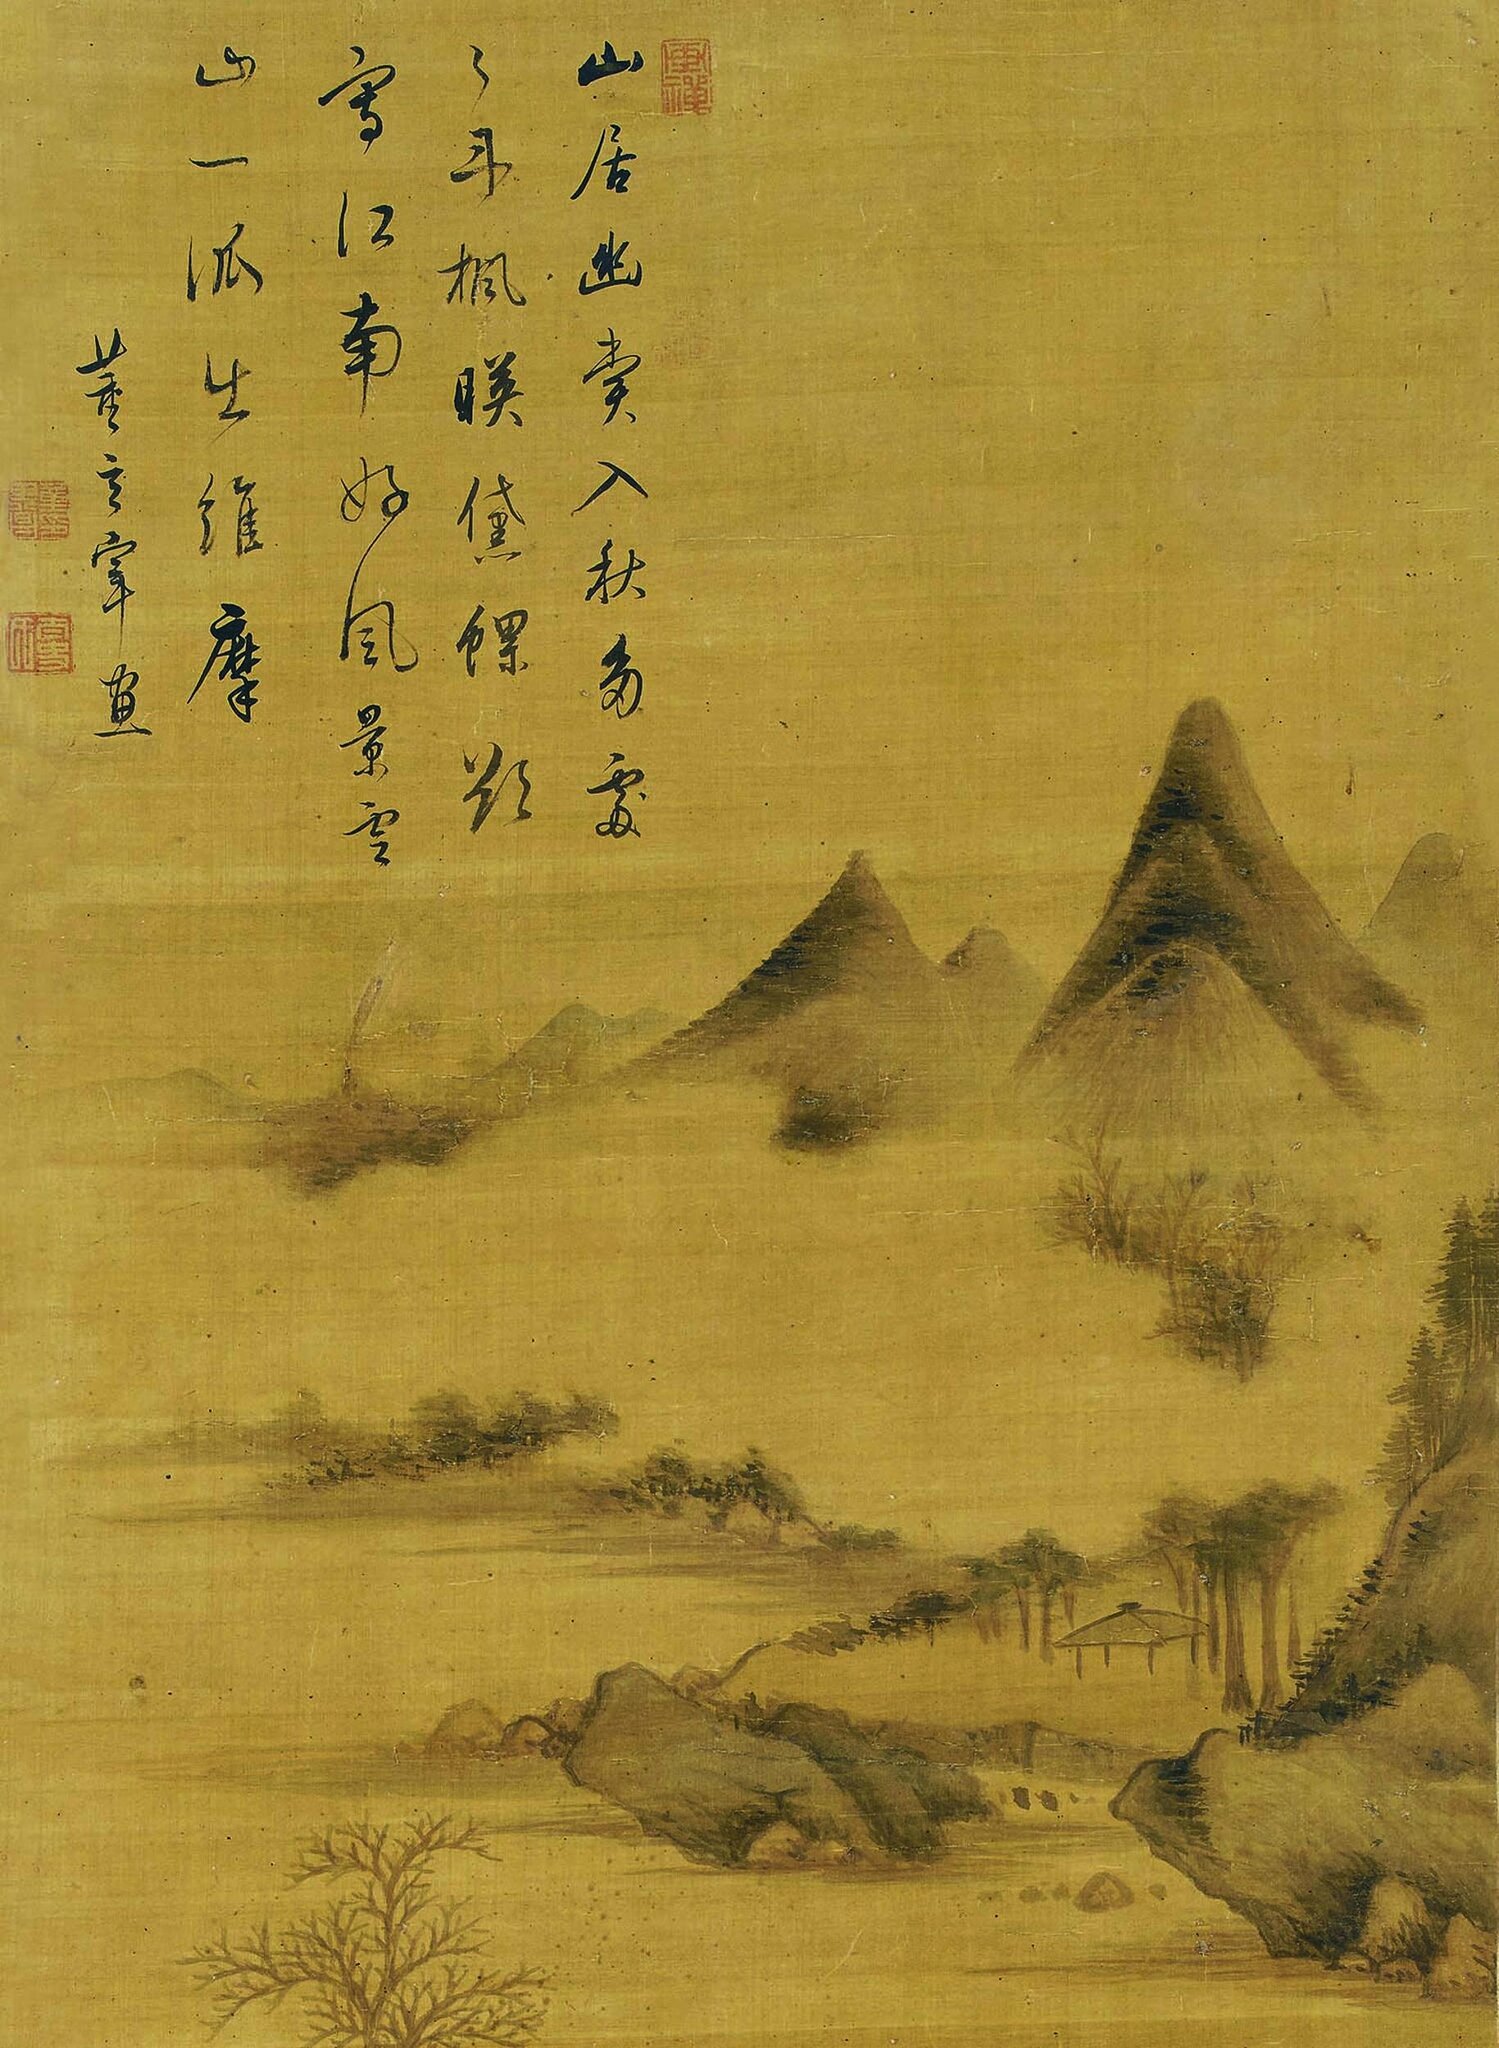 山居幽賞入秋多處
々丹楓映黛螺欲
寫江南好風景雲
山一派出維摩
董玄宰畫